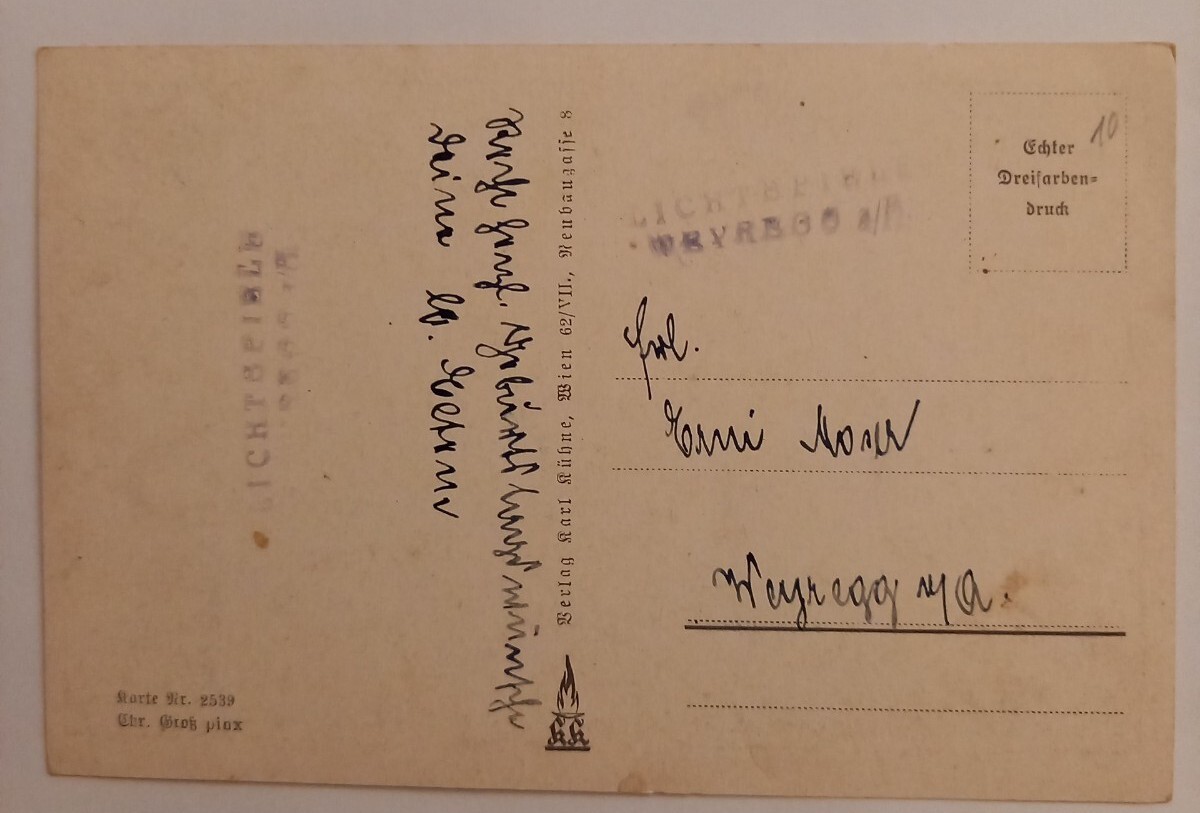 Recht herzl. Geburtstagswünsche
Deine
Verlag Karl Kühne, Wien 62/VII., Neubaugasse 8
KK
LICHTSPIELE
WEYREGG a/A
LICHTSPIELE
Echter
Dreifarben=
druck
10
Frl.
Erni Moser
Weyregg a/A.
Karte Nr. 2539
Chr. Groß pinx